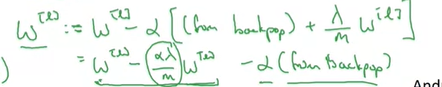 W^{[l]} := W^{[l]} - α [ (from backpop) + λ/m W^{[l]} ]
= W^{[l]} - αλ/m W^{[l]} - α (from backpop)
)
And